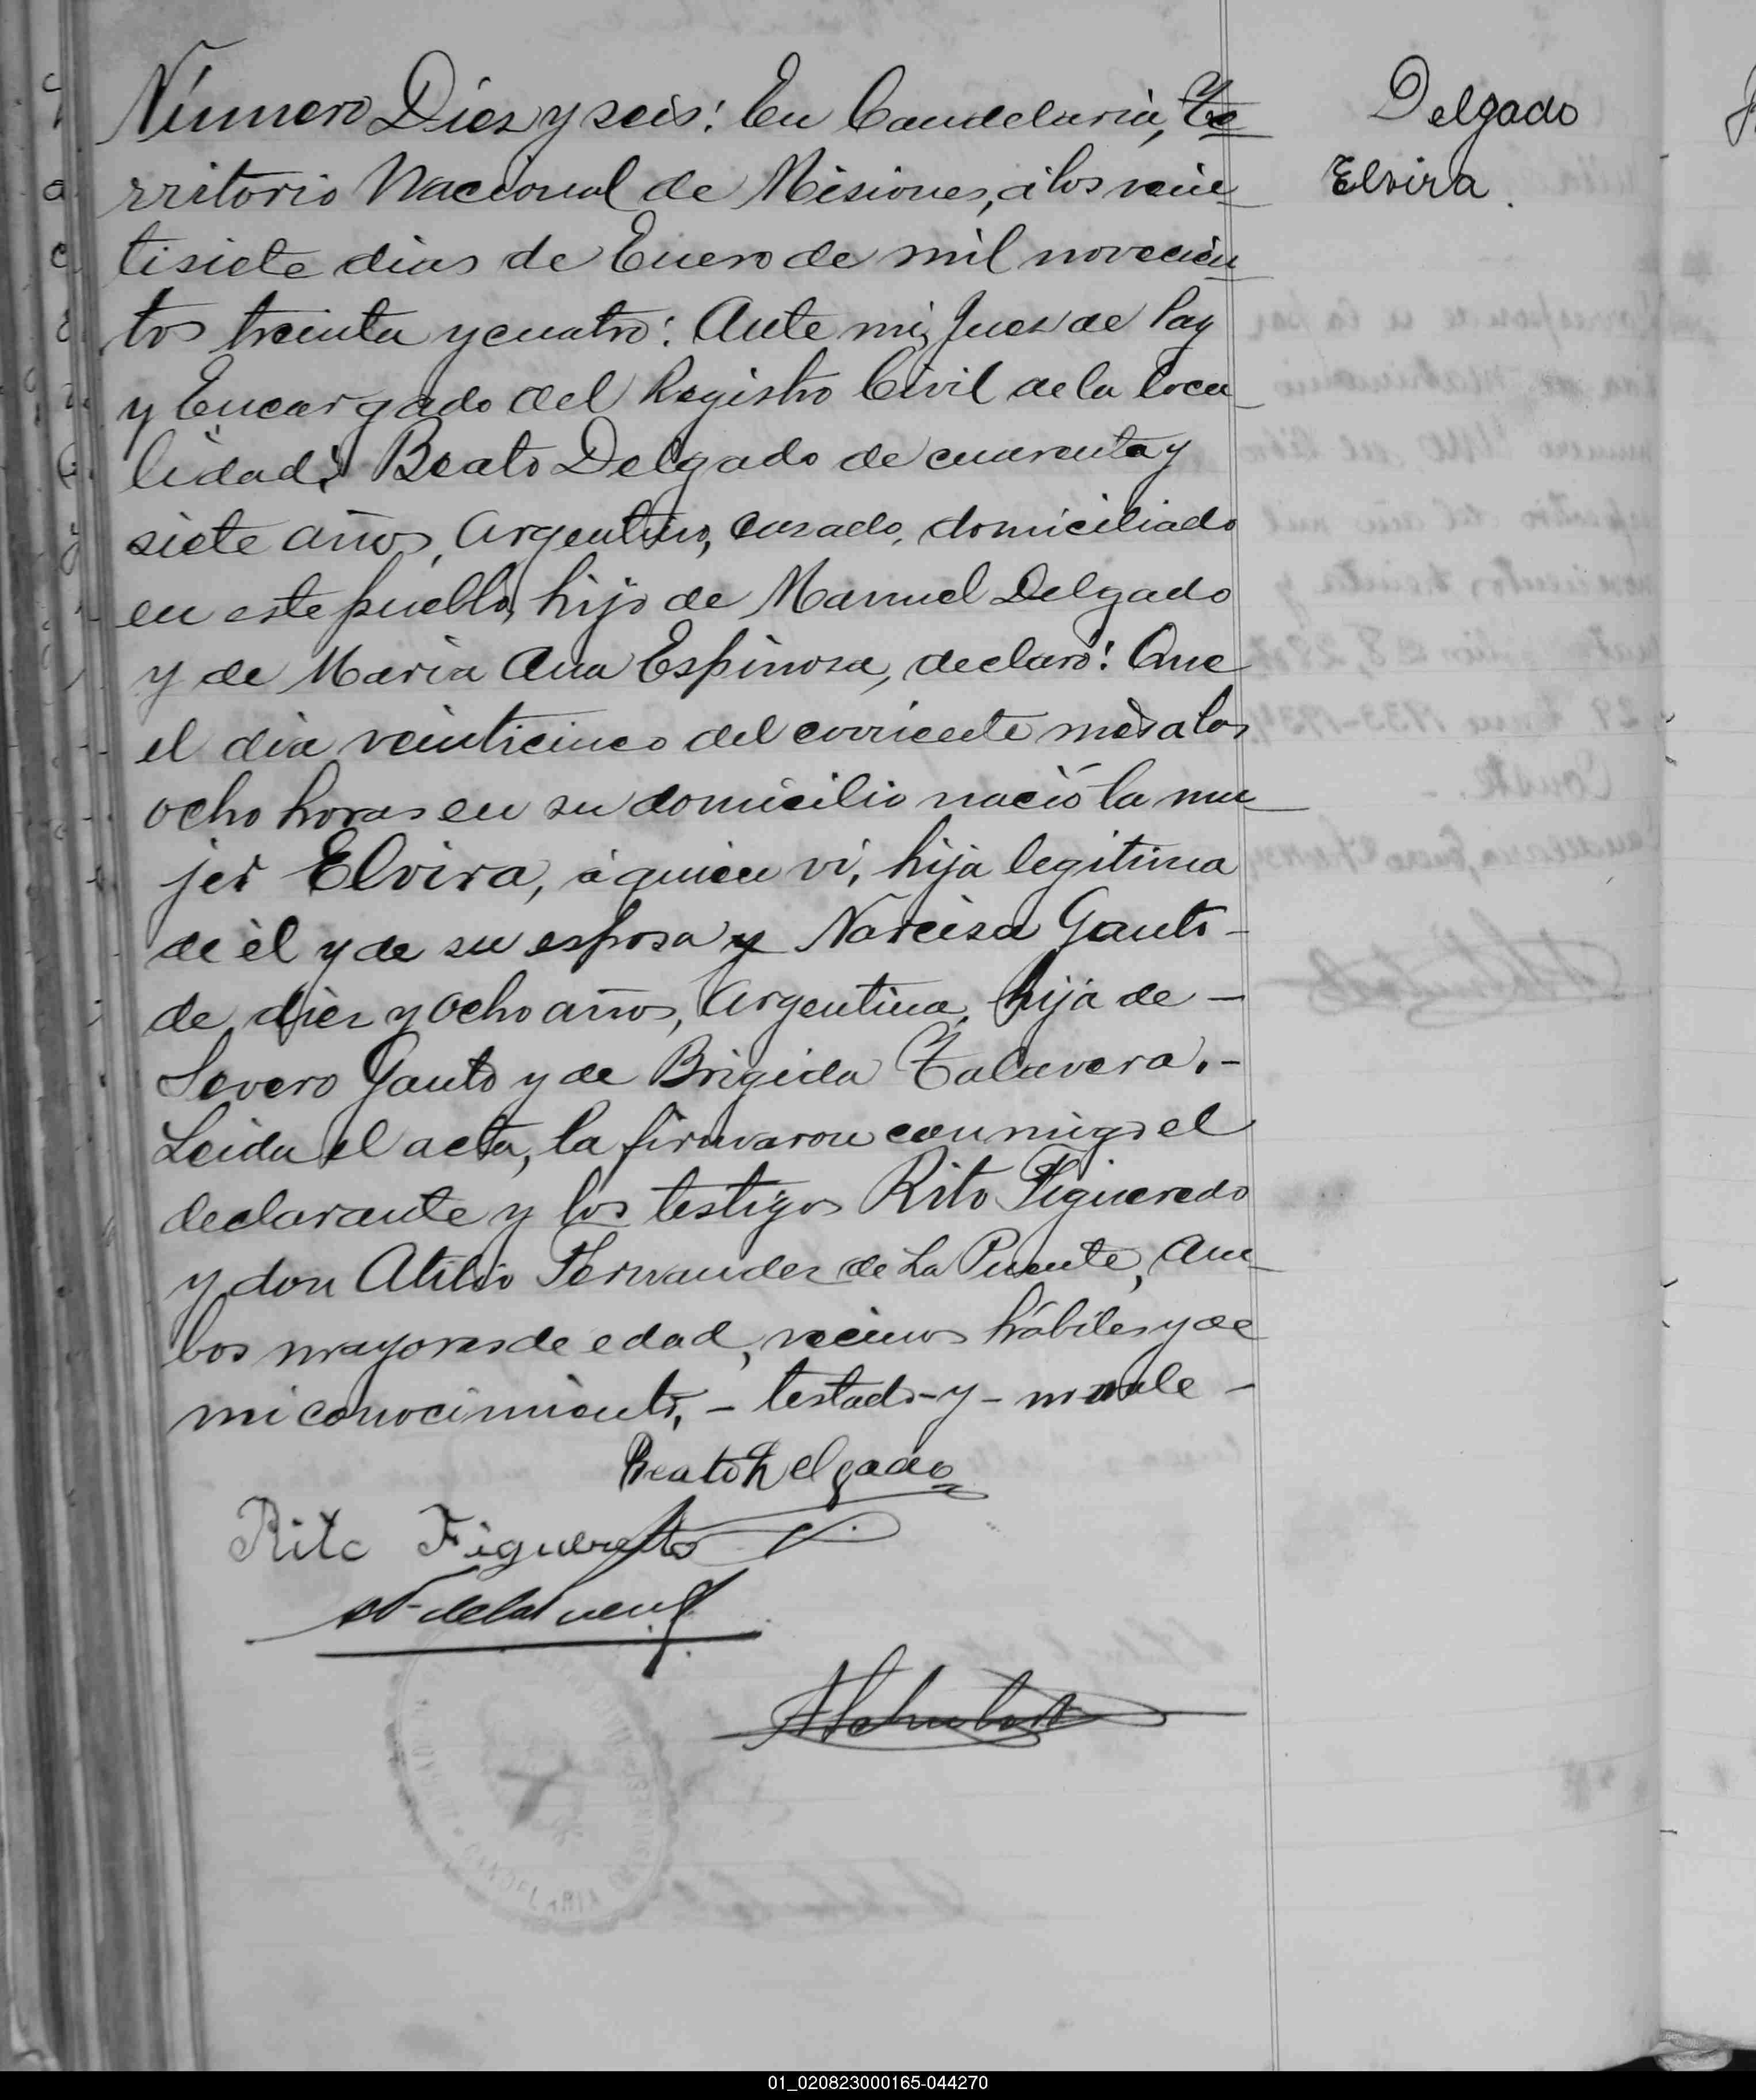 Número Diez y seis: En Candelaria, Te
rritorio Nacional de Misiones, á los vein
tisiete dias de Enero de mil novecien
tos treinta y cuatro: Ante mi, Juez de Paz
y Encargado del Registro Civil de la loca
lidad: Beato Delgado de cuarenta y
siete años, Argentino, casado, domiciliado
en este pueblo, hijo de Manuel Delgado
y de Maria Ana Espinosa, declaró: Que
el dia veinticinco del corriente mes a las
ocho horas en su domicilio nació la mu
jer Elvira, á quien vi, hija legitima
de èl y de su esposa y Narcisa Gauto -
de diez y ocho años, Argentina, hija de -
Severo Gauto y de Brigida Talavera. -
Leida el acta, la firmaron conmigo el
declarante y los testigos Rito Figueredo
y don Atilio Fernandez de La Puente, am
bos mayores de edad, vecinos hábiles y de
mi conocimiento. - testado - y - no vale -
Delgado
Elvira.
Beato Delgado
Rito Figueredo
01_020823000165-044270